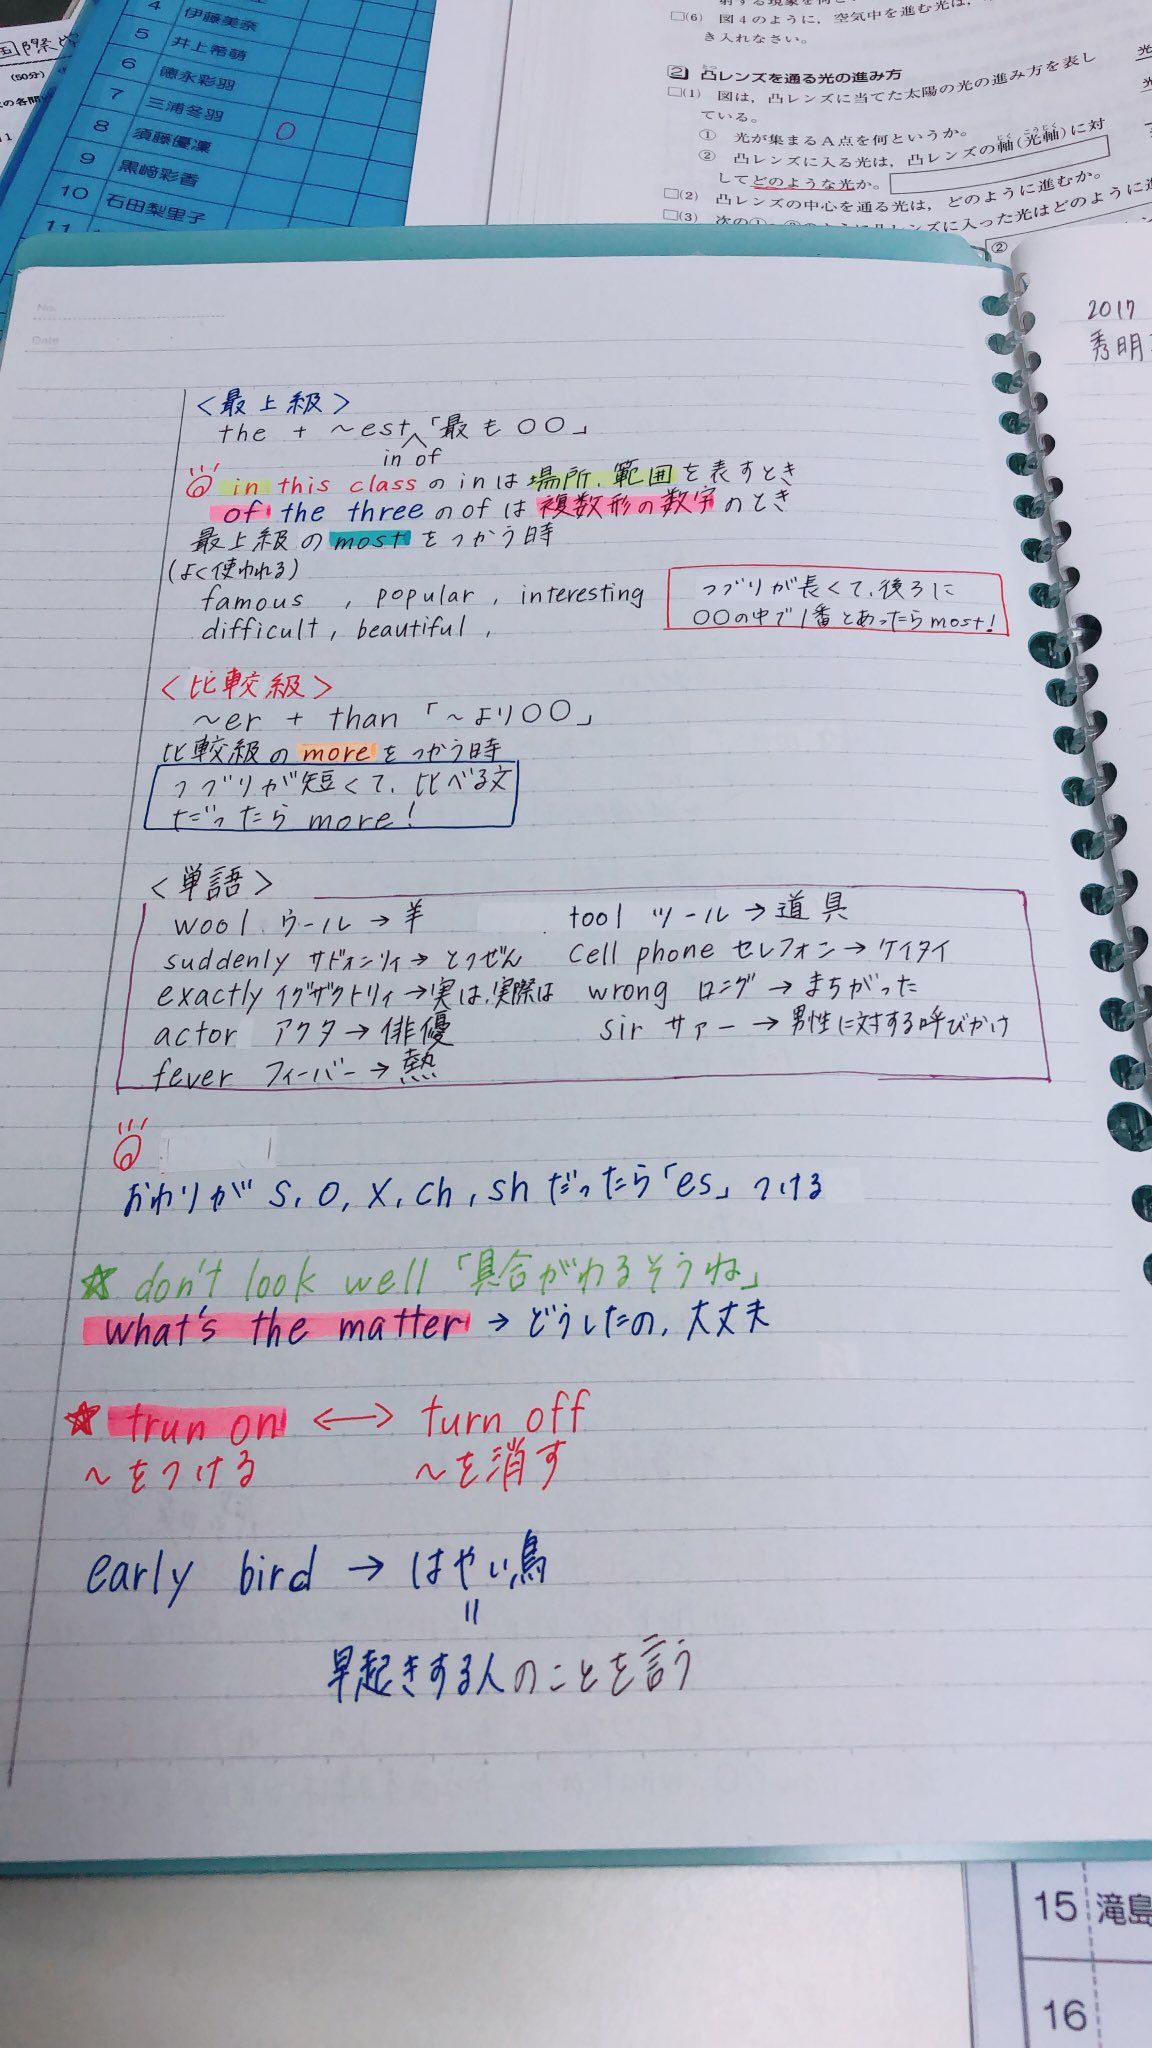 (50分)
4 伊藤美奈
5 井上希萌
6 德永彩羽
7 三浦冬羽
8 須藤優凜
9 黒﨑彩香
10 石田梨里子
11
□(6) 図4のように，空気中を進む光は，
き入れなさい。
2 凸レンズを通る光の進み方
□(1) 図は，凸レンズに当てた太陽の光の進み方を表し
ている。
① 光が集まるA点を何というか。
② 凸レンズに入る光は，凸レンズの軸(光軸)に対
してどのような光か。
□(2) 凸レンズの中心を通る光は，どのように進むか。
□(3)
②
No.
Date
2017
秀明
＜最上級＞
the + ~est 「最も○○」
in of
in this classのinは場所、範囲を表すとき
of the threeのofは複数形の数字のとき
最上級のmostをつかう時
(よく使われる)
famous , popular , interesting
difficult , beautiful ,
つづりが長くて、後ろに
○○の中で1番とあったらmost!
＜比較級＞
~er + than 「~より○○」
比較級のmoreをつかう時
つづりが短くて、比べる文
だったら more!
＜単語＞
wool ウール→羊 tool ツール→道具
suddenly サドォンリィ→とつぜん cell phone セレフォン→ケイタイ
exactly イグザクトリィ→実は、実際は wrong ロング→まちがった
actor アクタ→俳優 sir サァー→男性に対する呼びかけ
fever フィーバー→熱
おわりが s, o, x, ch, sh だったら「es」つける
☆ don't look well 「具合がわるそうね」
what's the matter → どうしたの, 大丈夫
☆ trun on ⟷ turn off
~をつける ~を消す
early bird → はやい鳥
＝
早起きする人のことを言う
15 滝島
16